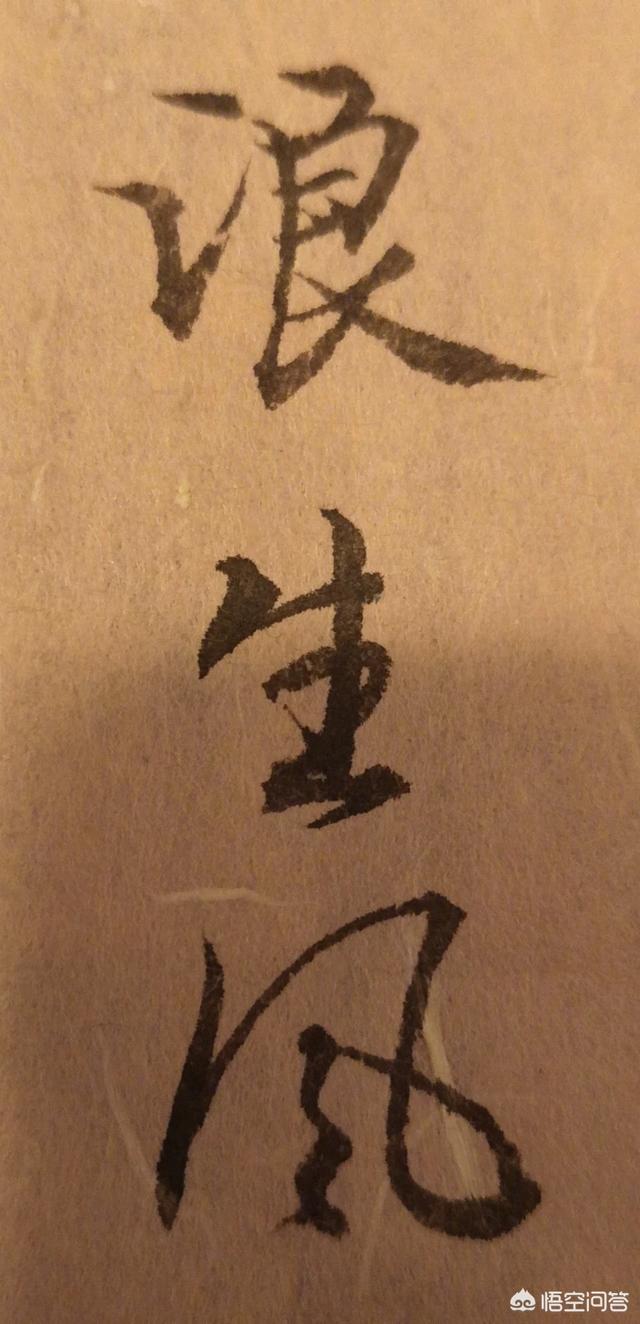 浪生风
悟空问答